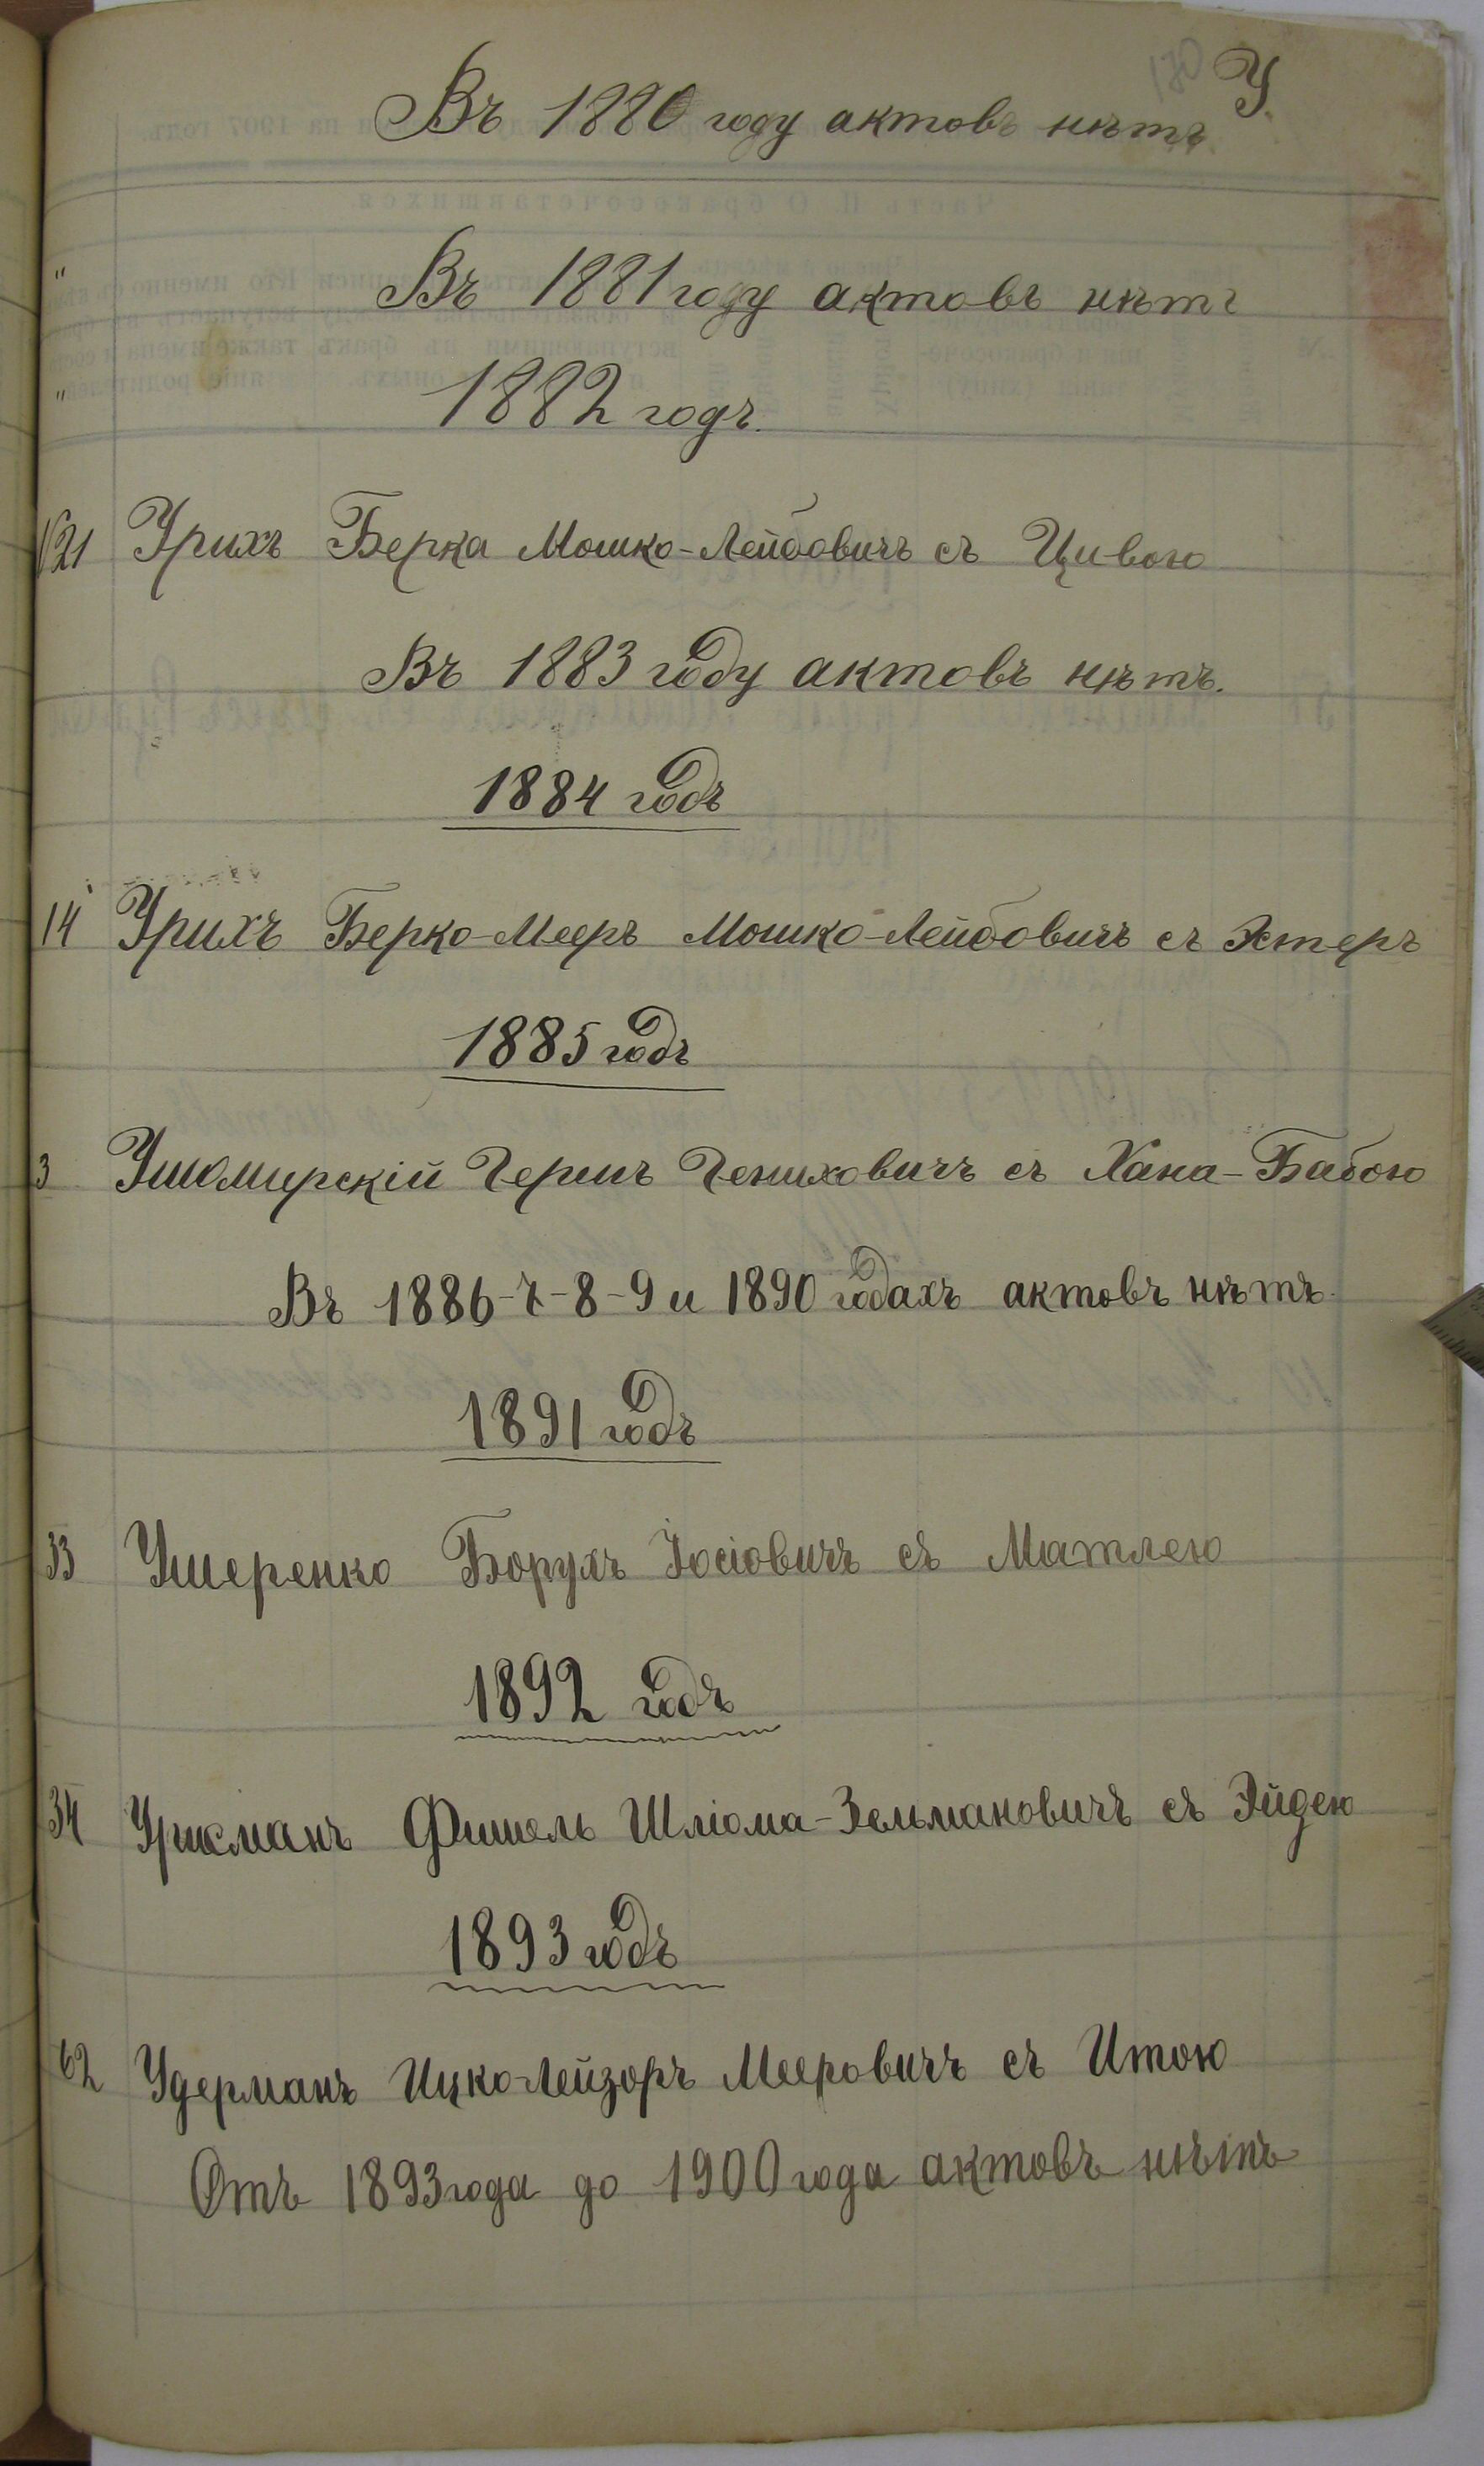 У.
Въ 1880 году актовъ нѣтъ.
" Въ 1881 году актовъ нѣтъ
" 1882 годъ.
№21 Урихъ Берка Мошко-Лейбовичъ съ Цивою
Въ 1883 году актовъ нѣтъ.
1884 годъ
14 Урихъ Берко-Мееръ Мошко-Лейбовичъ съ Эстеръ
1885 годъ
3 Ушомирскій Гершъ Гениховичъ съ Хана-Бабою
Въ 1886-7-8-9 и 1890 годахъ актовъ нѣтъ.
1891 годъ
33 Ушеренко Борухъ Іосіовичъ съ Матлею
1892 годъ
34 Уриxманъ Фишель Шліома-Зельмановичъ съ Эйдею
1893 годъ
62 Удерманъ Ицко-Лейзоръ Мееровичъ съ Итою
Отъ 1893 года до 1900 года актовъ нѣтъ